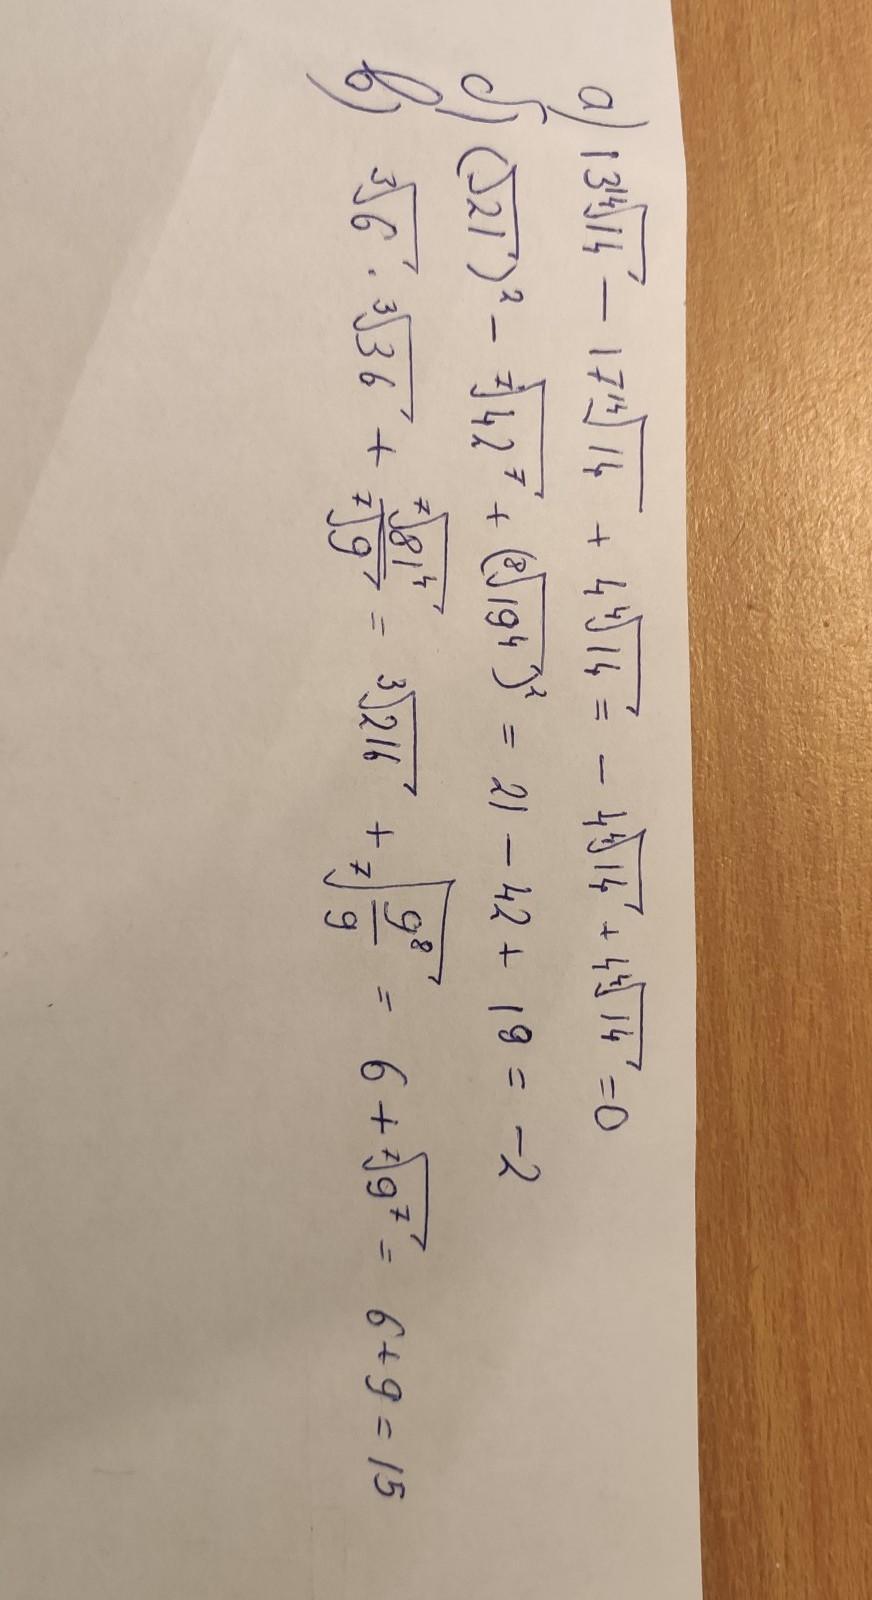 а) 13⁴√14 − 17⁴√14 + 4⁴√14 = − 4⁴√14 + 4⁴√14 = 0
б) (√21)² − ⁷√42⁷ + (⁸√19⁴)² = 21 − 42 + 19 = −2
в) ³√6 · ³√36 + ⁷√81⁴/⁷√9 = ³√216 + ⁷√(9⁸/9) = 6 + ⁷√9⁷ = 6 + 9 = 15